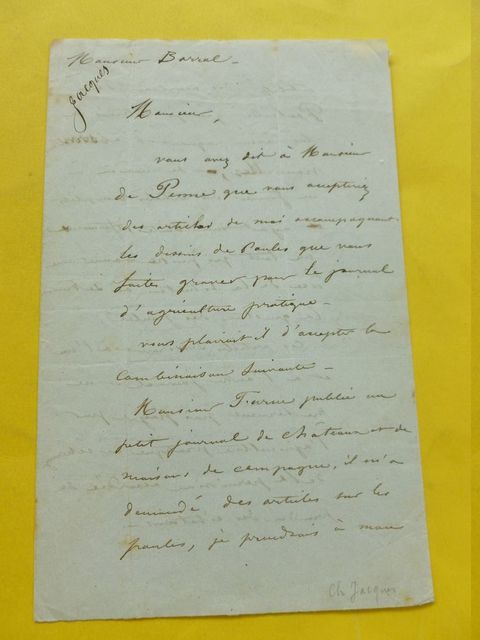 Monsieur Barral -
Jacques
Monsieur,
vous avez dit à Monsieur
de Penne que vous accepteriez
des articles de moi accompagnant
les dessins de Poules que vous
faites graver pour le journal
d'agriculture pratique -
vous plairait il d'accepter la
combinaison suivante -
Monsieur publie un
petit journal de châteaux et de
maisons de campagne, il m'a
demandé des articles sur les
poules, je prendrais à mon
Ch Jacques